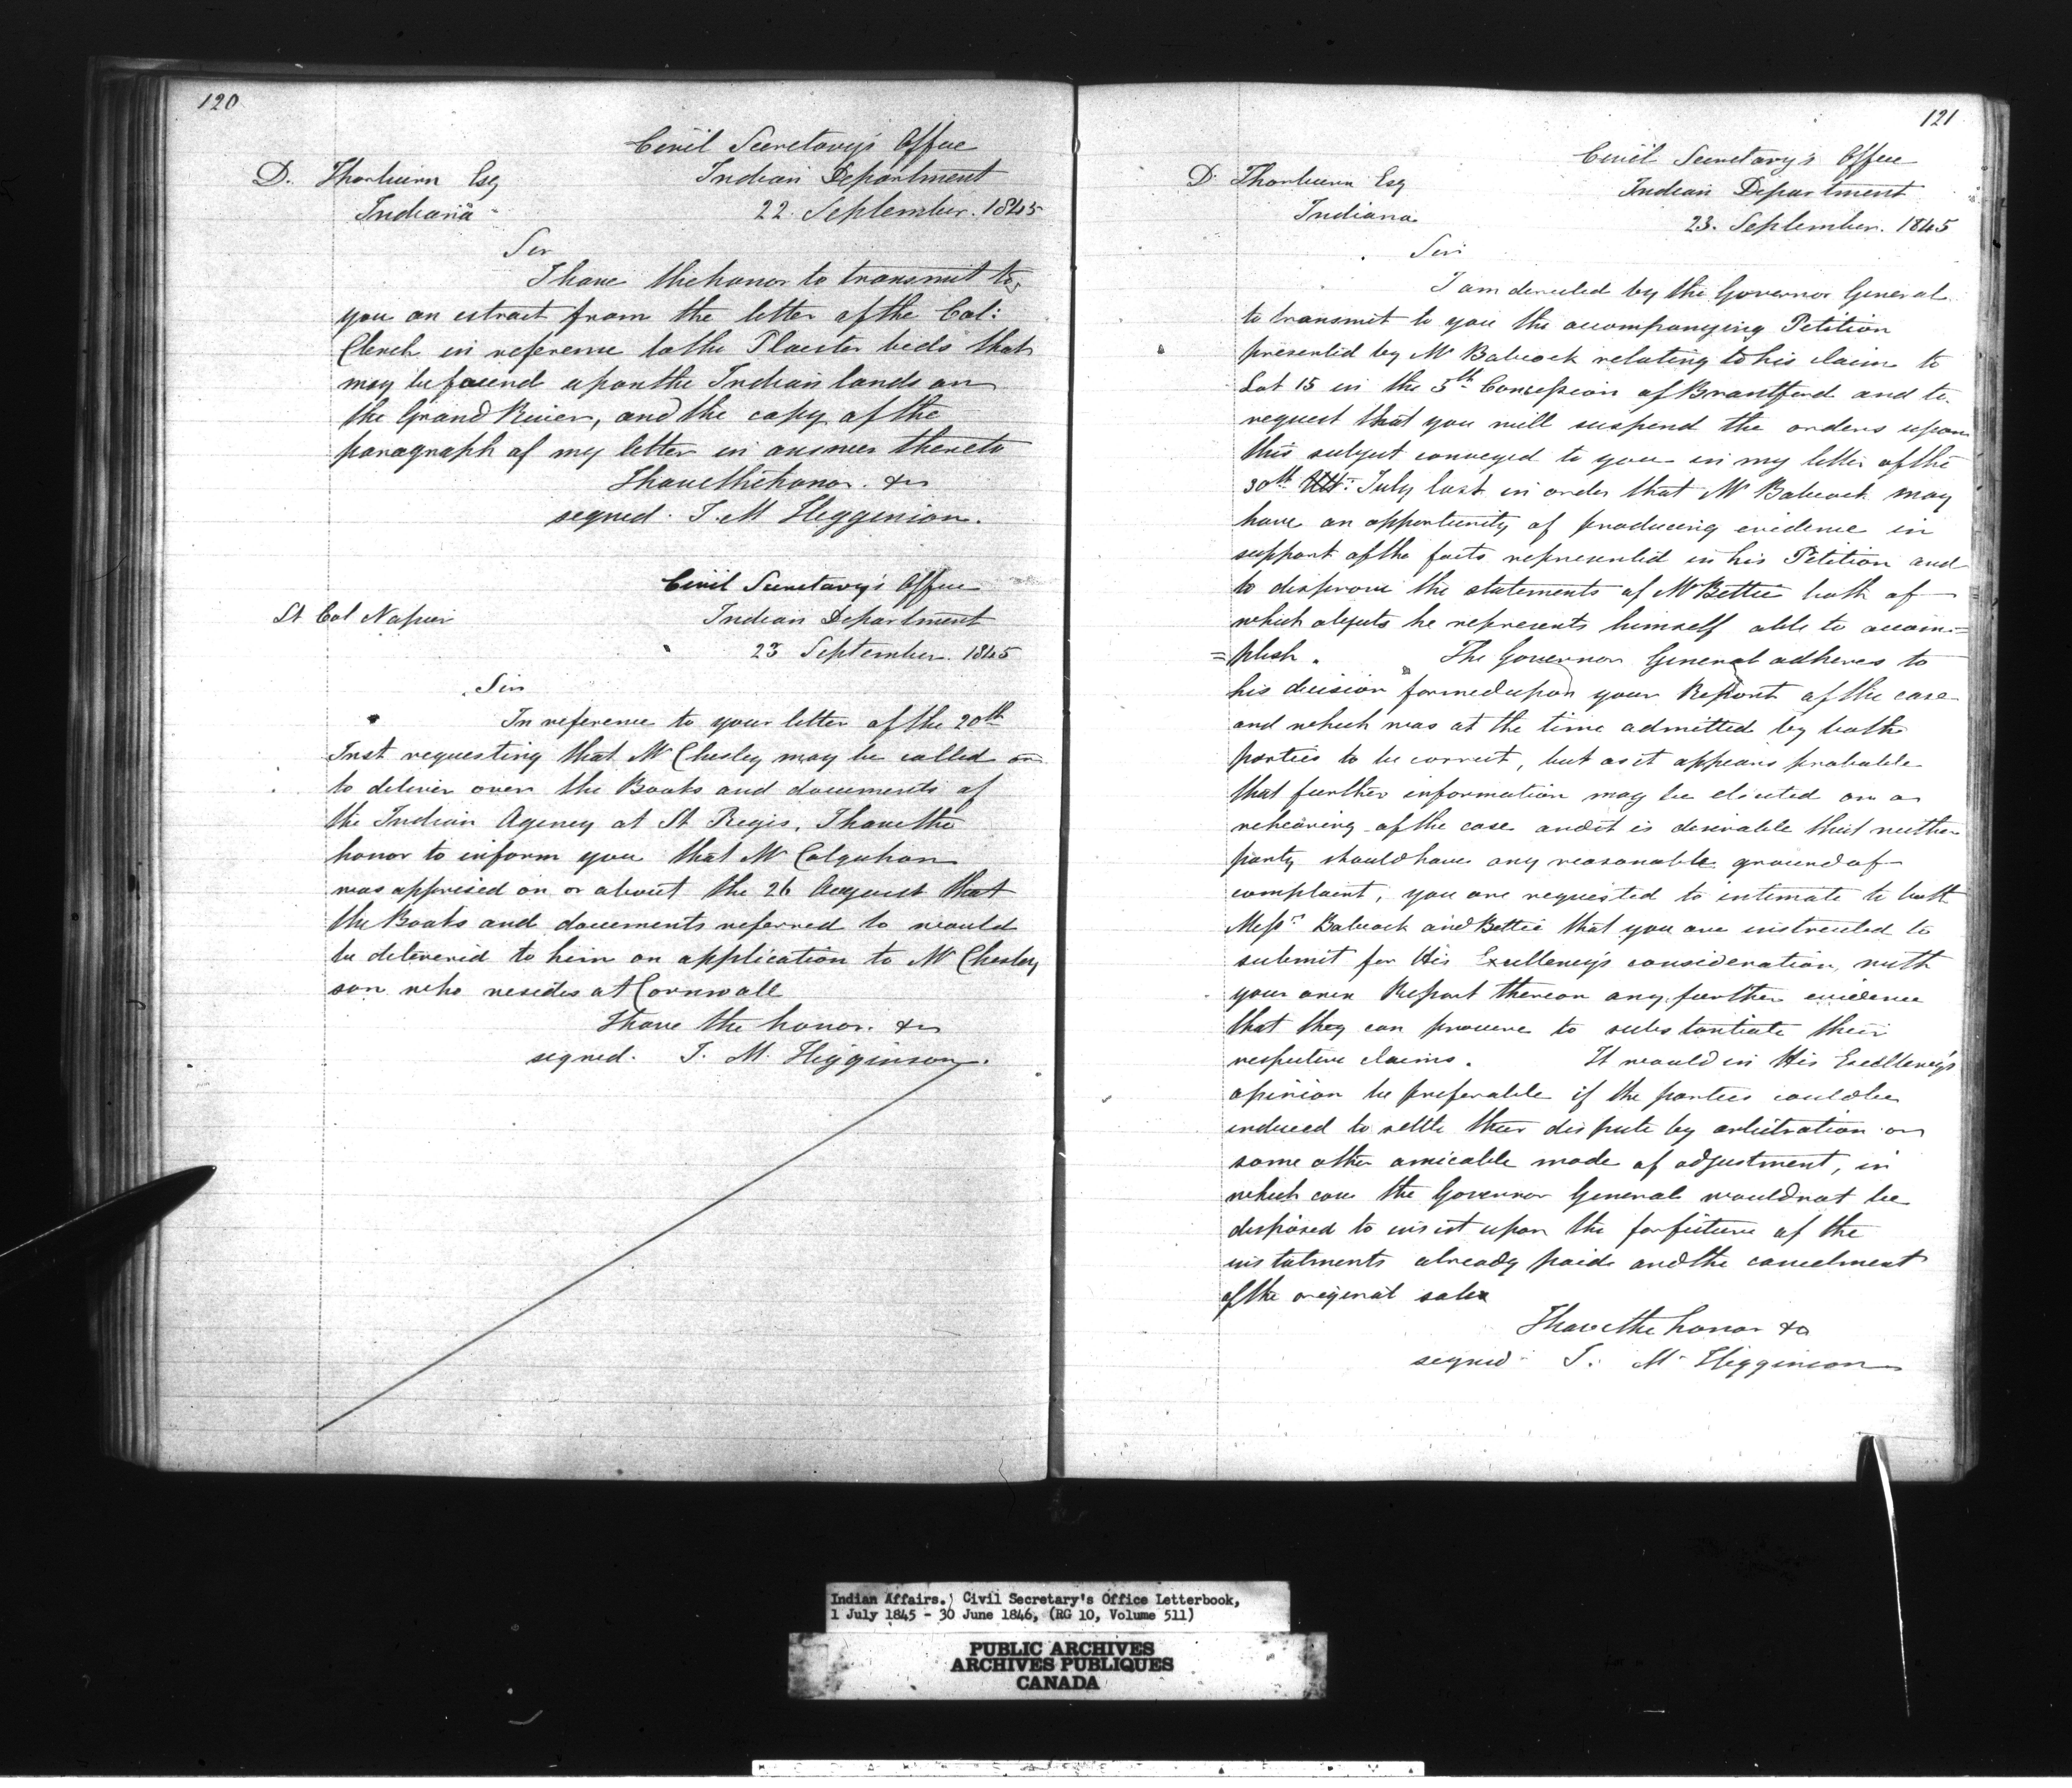 120
Civil Secretary's Office
D. Thorburn Esq Indian Department
Indiana 22 September. 1845
Sir
I have the honor to transmit to
you an extract from the letter of the Col:
Clench in reference to the Plaister beds that
may be found upon the Indian lands on
the Grand River, and the copy of the
paragraph of my letter in answer thereto
I have the honor. &c
signed. J. M Higginson.
Civil Secretary's Office
Lt Col Napier Indian Department
23 September. 1845
Sir
In reference to your letter of the 20th
Inst requesting that Mr Chesley may be called on
to deliver over the Books and documents of
the Indian Agency at St Regis, I have the
honor to inform you that Mr Colquhon
was apprised on or about the 26 August that
the Books and documents referred to would
be delivered to him on application to Mr Chesley
son who resides at Cornwall
I have the honor. &c
signed. J. M. Higginson.
121
Civil Secretary's Office
D. Thorburn Esq Indian Department
Indiana 23. September. 1845
Sir
I am directed by the Governor General
to transmit to you the accompanying Petition
presented by Mr Babcock relating to his claim to
Lot 15 in the 5th Concession of Brantford and to
request that you will suspend the orders upon
this subject conveyed to you in my letter of the
30th Ult: July last in order that Mr Babcock may
have an opportunity of producing evidence in
support of the facts represented in his Petition and
to disprove the statements of Mr Bettie both of
which objects he represents himself able to accom=
=plish. The Governor General adheres to
his decision formed upon your Report of the case
and which was at the time admitted by both
parties to be correct, but as it appears probable
that further information may be elicited on a
rehearing of the case and it is desirable that neither
party should have any reasonable ground of
complaint, you are requested to intimate to both
Messrs Babcock and Bettie that you are instructed to
submit for His Excellency's consideration, with
your own Report thereon any further evidence
that they can procure to substantiate their
respective claims. It would in His Excellency's
opinion be preferable if the parties could be
induced to settle their dispute by arbitration or
some other amicable mode of adjustment, in
which case the Governor General would not be
disposed to insist upon the forfeiture of the
instalments already paid and the cancelment
of the original sale
I have the honor &c
signed J. M. Higginson
Indian Affairs. Civil Secretary's Office Letterbook,
1 July 1845 - 30 June 1846, (RG 10, Volume 511)
PUBLIC ARCHIVES
ARCHIVES PUBLIQUES
CANADA